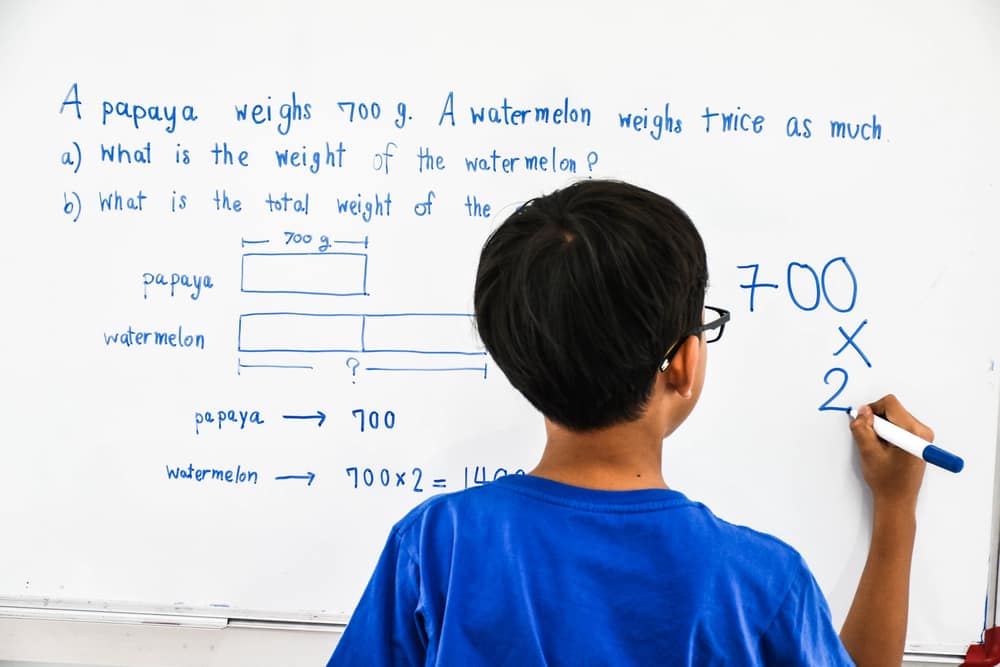 A papaya weighs 700 g. A watermelon weighs twice as much.
a) What is the weight of the watermelon?
b) What is the total weight of the
700 g
papaya
watermelon
?
papaya → 700
watermelon → 700 x 2 =
700
x
2